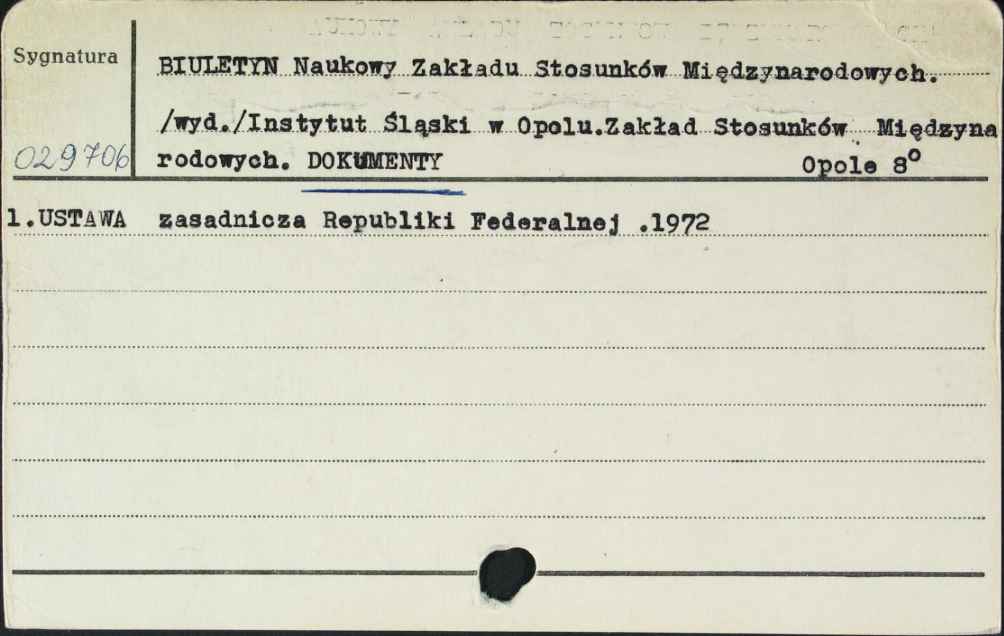 Sygnatura
BIULETYN Naukowy Zakładu Stosunków Międzynarodowych.
/wyd./Instytut Śląski w Opolu.Zakład Stosunków Międzyna
029706
rodowych. DOKUMENTY Opole 8°
1.USTAWA zasadnicza Republiki Federalnej .1972